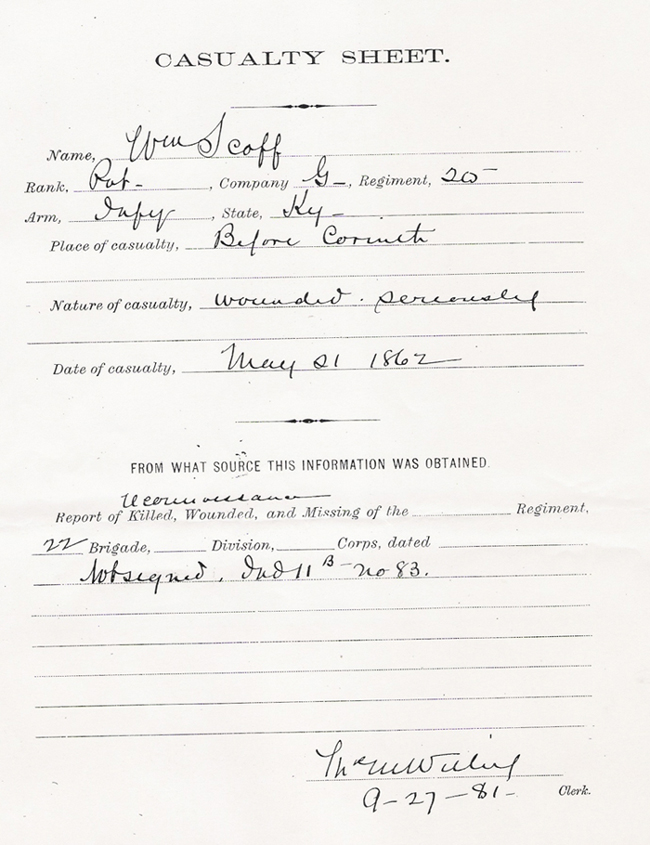 CASUALTY SHEET.
Name, Wm Scoff
Rank, Pvt- , Company G-, Regiment, 20
Arm, Infy , State, Ky-
Place of casualty, Before Corinth
Nature of casualty, wounded. seriously
Date of casualty, May 21 1862
FROM WHAT SOURCE THIS INFORMATION WAS OBTAINED.
Reconnoissance
Report of Killed, Wounded, and Missing of the Regiment,
22 Brigade, Division, Corps, dated
Not signed, 11 B- no 83.
9-27-81- Clerk.